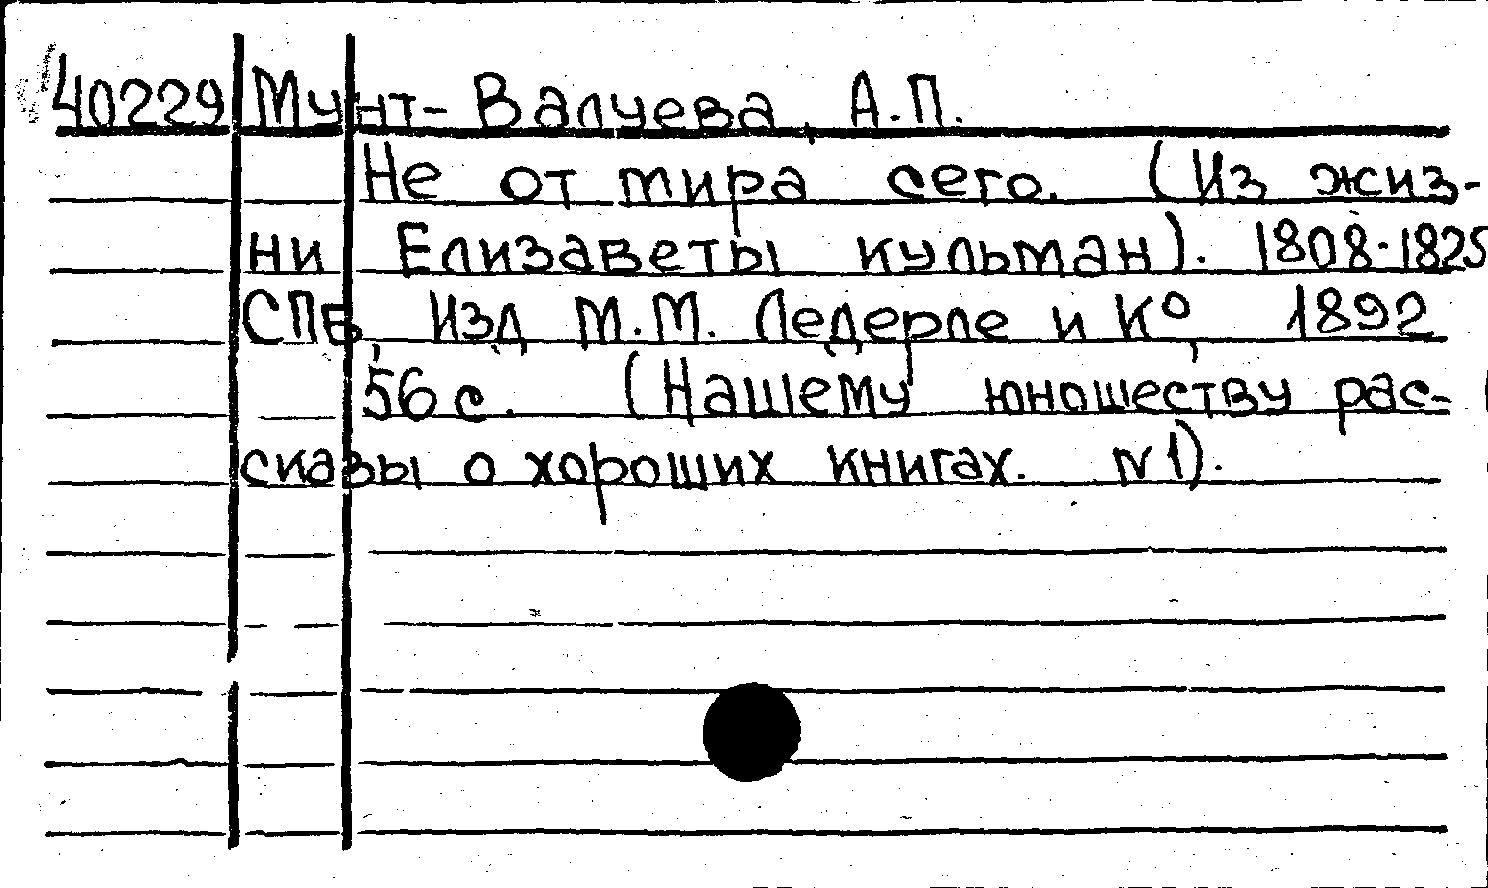 40229 Мунт-Валуева, А.П.
Не от мира сего. (Из жиз-
ни Елизаветы Кульман). 1808-1825
СПБ, Изд. М.М. Ледерле и Ко, 1892
56 с. (Нашему юношеству рас-
сказы о хороших книгах. №1).